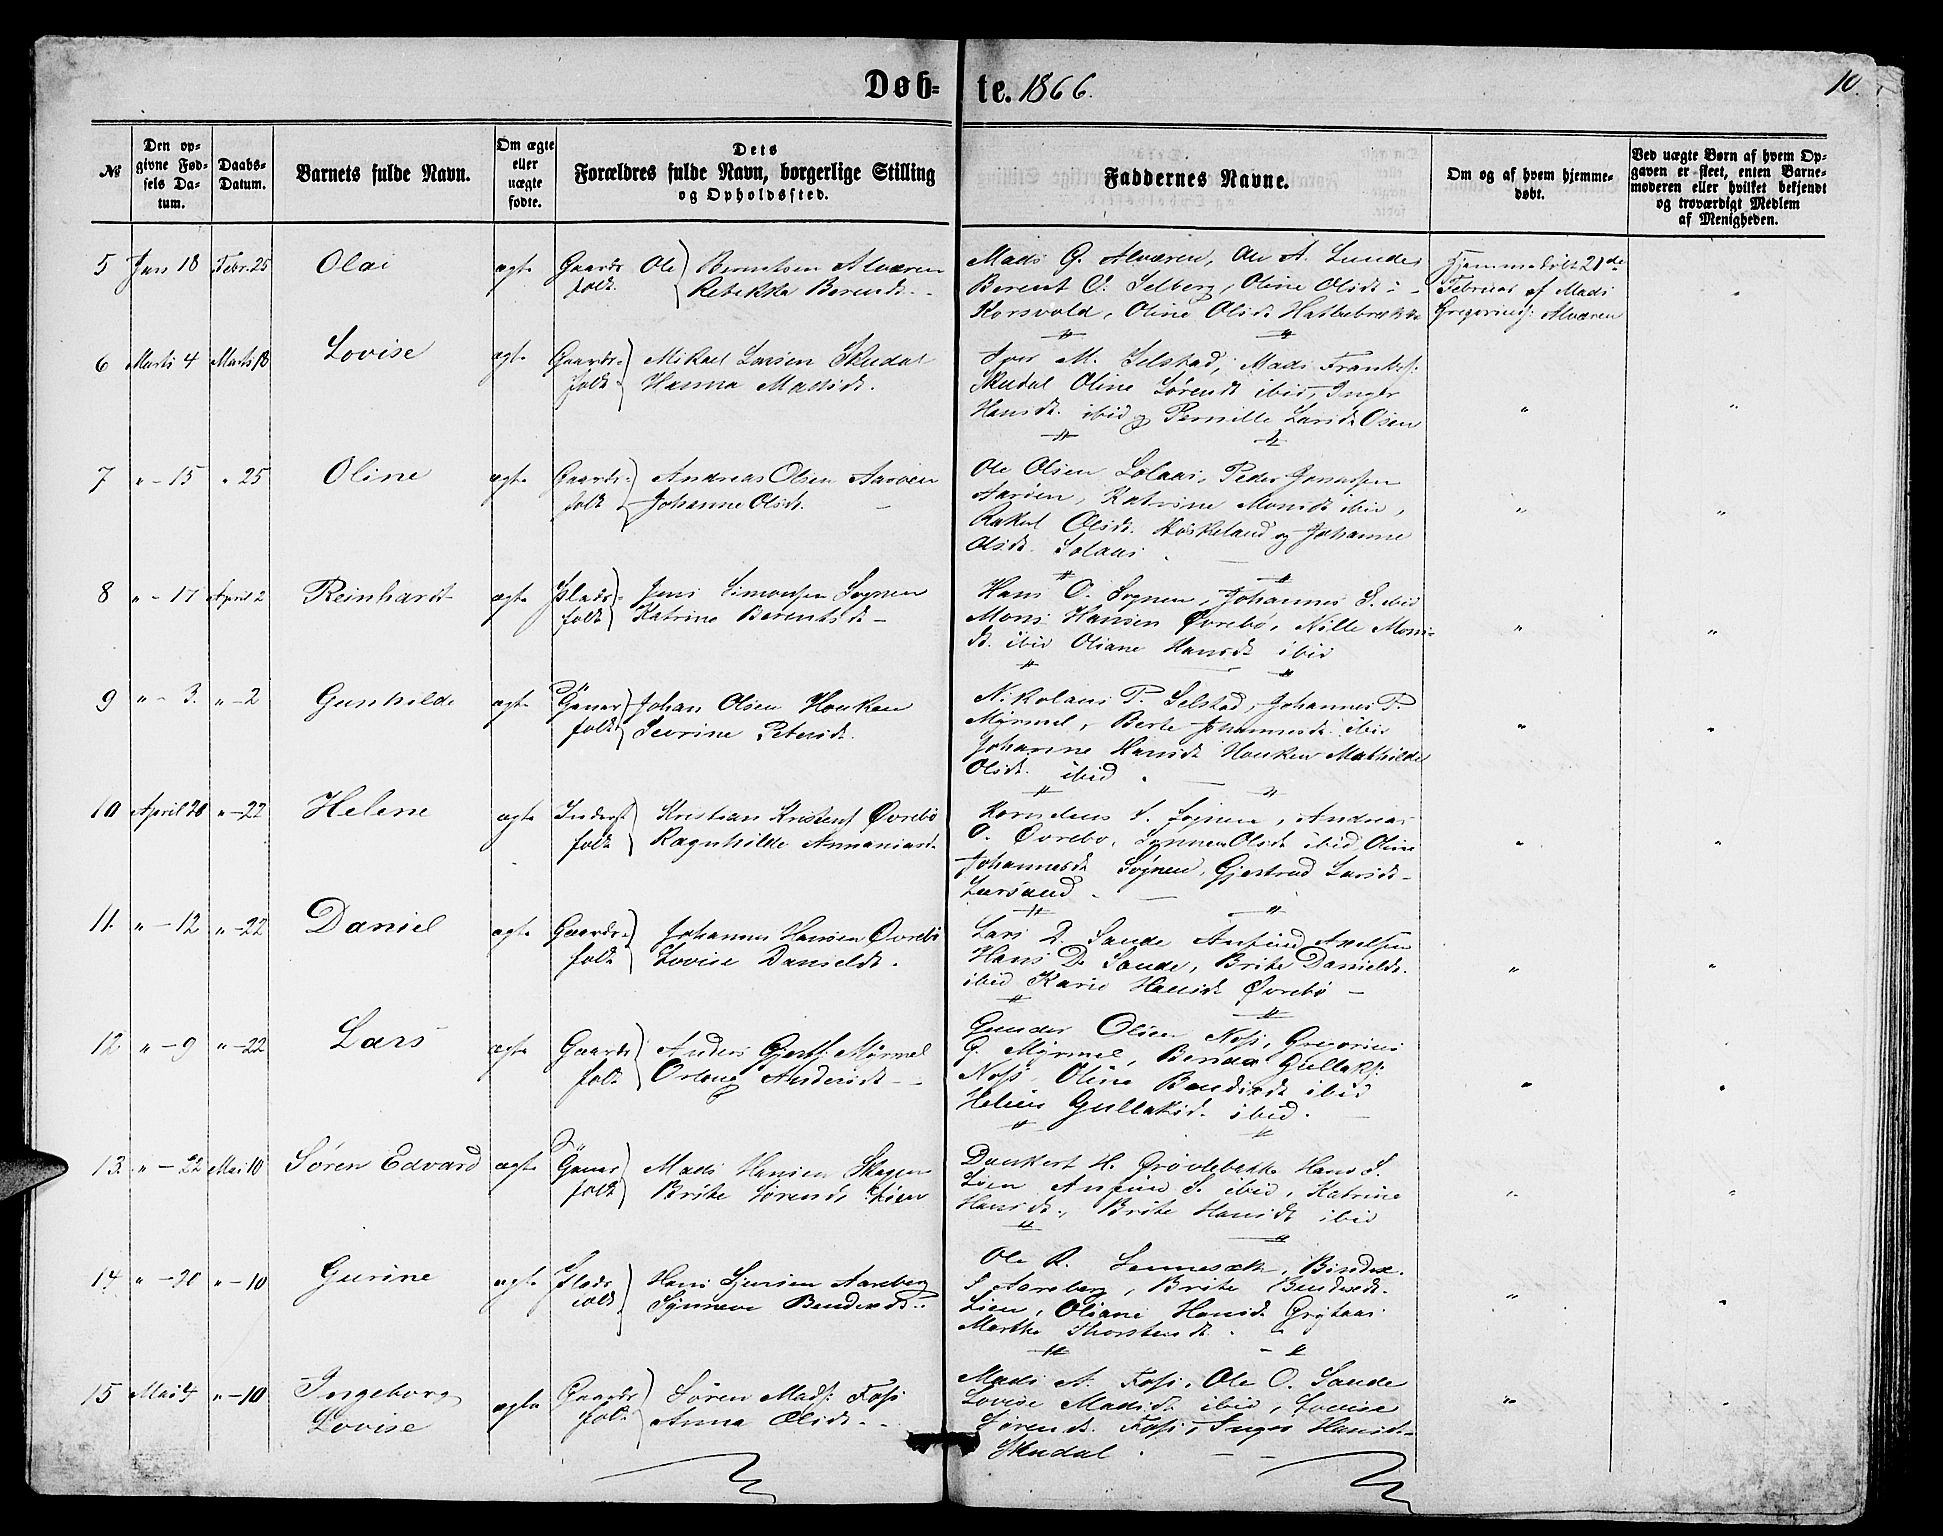 Døb-te. 1866. 10.
№ | Den opgivne Fødsels Datum. | Daabs-Datum. | Barnets fulde Navn. | Om ægte eller uægte fødte. | Dets Forældres fulde Navn, borgerlige Stilling og Opholdssted. | Faddernes Navne. | Om og af hvem hjemmedøbt. | Ved uægte Børn af hvem Opgaven er skeet, enten Barnemoderen eller hvilket bekjendt og troværdigt Medlem af Menigheden.
5 Jan 18 Febr. 25 Olai ægte Gaardsfolk Ole Berentsen Alværen
Rebekka Berendsd. -
Mads G. Alværen, Ole A. Lunde
Berent O. Selberg, Oline Olsdt
Korsvold, Oline Olsdt
Hjemmedøbt 21de
Februar af Mads
Gregorius: Alværen
6 Marts 4 Marts 18 Lovise ægte Gaardsfolk Mikael Larsen Skudal
Hanna Madsdt.
Iver M. Selstad, Mads Franks:
Skudal Oline Sørensdt ibid, Inger
Hansdt. ibid og Pernille Larsdt Osen
7 " - 15 " 25 Oline ægte Gaardsfolk Andreas Olsen Aarøen
Johanne Olsdt. -
Ole Olsen Solaas, Peder
Aarøen, Katrine Monsdt ibid,
Rakel Olsdt. Høskeland og Johanne
Olsdt. Solaas
8 " - 17 April 2 Reinhardt ægte Pladsfolk Jens Simonsen Sognen
Katrine Berentsdt -
Hans O. Sognen, Johannes S. ibid
Mons Hansen Øvrebø, Nille Mons-
dt. ibid Oliane Hansdt ibid
9 " - 3. " - 2 Gunhilde ægte Johan Olsen Houken
Severine Petersdt.
Nikolaus P. Selstad, Johannes P.
Myrmel, Berte Johannesdt ibid
Johanne Hansdt Houken Mathilde
Olsdt. ibid
10 April 20 " - 22 Helene ægte Inderstfolk Kristian Kristens Øvrebø
Ragnhilde Annaniasdt
Kornelius S. Sognen, Andreas
O. Øvrebø, Olsdt ibid Oline
Johannesdt Sognen, Gjertrud Larsdt
11. " - 12 " - 22 Daniel ægte Gaardsfolk Johannes Hansen Øvrebø
Lovise Danieldt.
Lars D. Sande Anfind Axelsen
Hans D. Sande, Brite Danieldt.
ibid Kari Hansdt Øvrebø -
12 " - 9 " - 22 Lars ægte Gaardsfolk Anders Gjertf: Myrmel
Andersdt -
Gunder Olsen Nøss, Gregorius
G. Myrmel, Gullaks:
Nøss, Oline ibid
Gullaksd. ibid.
13. " - 22 Mai 10 Søren Edvard ægte Mads Hansen Skagen
Brite Sørensdt Lien
Dankert H. Hans S.
Lien Anfind S. ibid, Katrine
Hansdt, Brite Hansdt ibid
14 " - 30 " - 10 Gurine ægte Pladsfolk Hans Aareberg
Synneve
Ole R.
S Aareberg, Brite
Lien, Oliane Hansdt Grytaas
Marthe Thorsteinsdt
15 Mai 4 " - 10 Ingeborg
Lovise
ægte Gaardsfolk Søren Mads: Foss
Anna Olsdt. -
Mads A. Foss, Ole O. Sande
Lovise Madsdt ibid, Lovise
Sørensdt. Foss, Inger Hansdt
Skudal